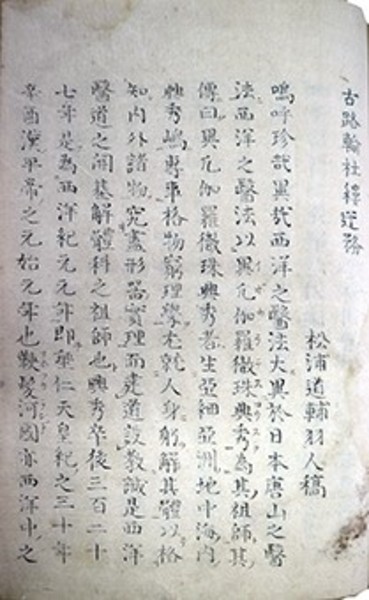 古路輸杜釋運務
松浦道輔羽人稿
嗚呼珍哉異哉西洋之醫法大異於日本唐山之醫
法西洋之醫法以異凡伽羅微珠與秀為其祖師其
傳曰異凡伽羅微珠與秀者生亞細亞洲地中海内
與秀嶋專平格物窮理學尤就人身躬解其體以格
知内外諸物究盡形器實理而建道設教誠是西洋
醫道之開基解體科之祖師也與秀卒後三百二十
七年是為西洋紀元元年即垂仁天皇紀之三十年
辛酉漢平帝之元始元年也鞅髮河國亦西洋中之